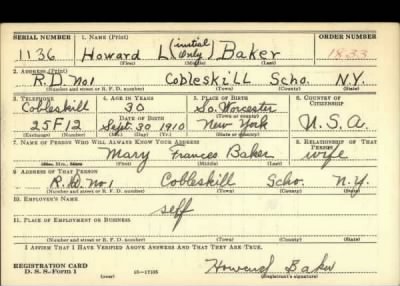 SERIAL NUMBER 1. NAME (Print) ORDER NUMBER
1136 Howard L (initial only) Baker 1833
(First) (Middle) (Last)
2. ADDRESS (Print)
R.D. No 1 Cobleskill Scho. N.Y.
(Number and street or R. F. D. number) (Town) (County) (State)
3. TELEPHONE 4. AGE IN YEARS 5. PLACE OF BIRTH 6. COUNTRY OF CITIZENSHIP
Cobleskill 30 So. Worcester
DATE OF BIRTH (Town or county)
25F12 Sept. 30 1910 New York U.S.A.
(Exchange) (Number) (Mo.) (Day) (Yr.) (State or country)
7. NAME OF PERSON WHO WILL ALWAYS KNOW YOUR ADDRESS 8. RELATIONSHIP OF THAT PERSON
Mary Frances Baker wife
(Mr., Mrs., Miss) (First) (Middle) (Last)
9. ADDRESS OF THAT PERSON
R.D. No 1 Cobleskill Scho. N.Y.
(Number and street or R. F. D. number) (Town) (County) (State)
10. EMPLOYER'S NAME
self
11. PLACE OF EMPLOYMENT OR BUSINESS
(Number and street or R. F. D. number) (Town) (County) (State)
I AFFIRM THAT I HAVE VERIFIED ABOVE ANSWERS AND THAT THEY ARE TRUE.
REGISTRATION CARD Howard Baker
D. S. S. Form 1 (over) 16—17105 (Registrant's signature)